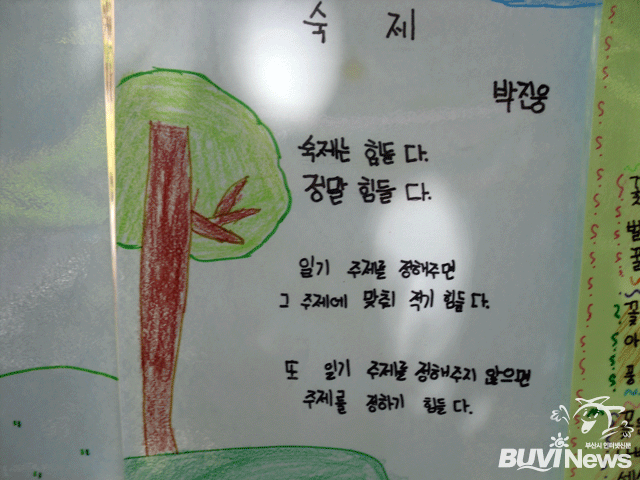 숙 제
박진웅
숙제는 힘든 다.
정말 힘들 다.
일기 주제를 정해주면
그 주제에 맞춰 적기 힘들다.
또 일기 주제를 정해주지 않으면
주제를 정하기 힘들 다.
꽃
벌
꿀
꽃
아
풍
부산시 인터넷신문
BUVI News